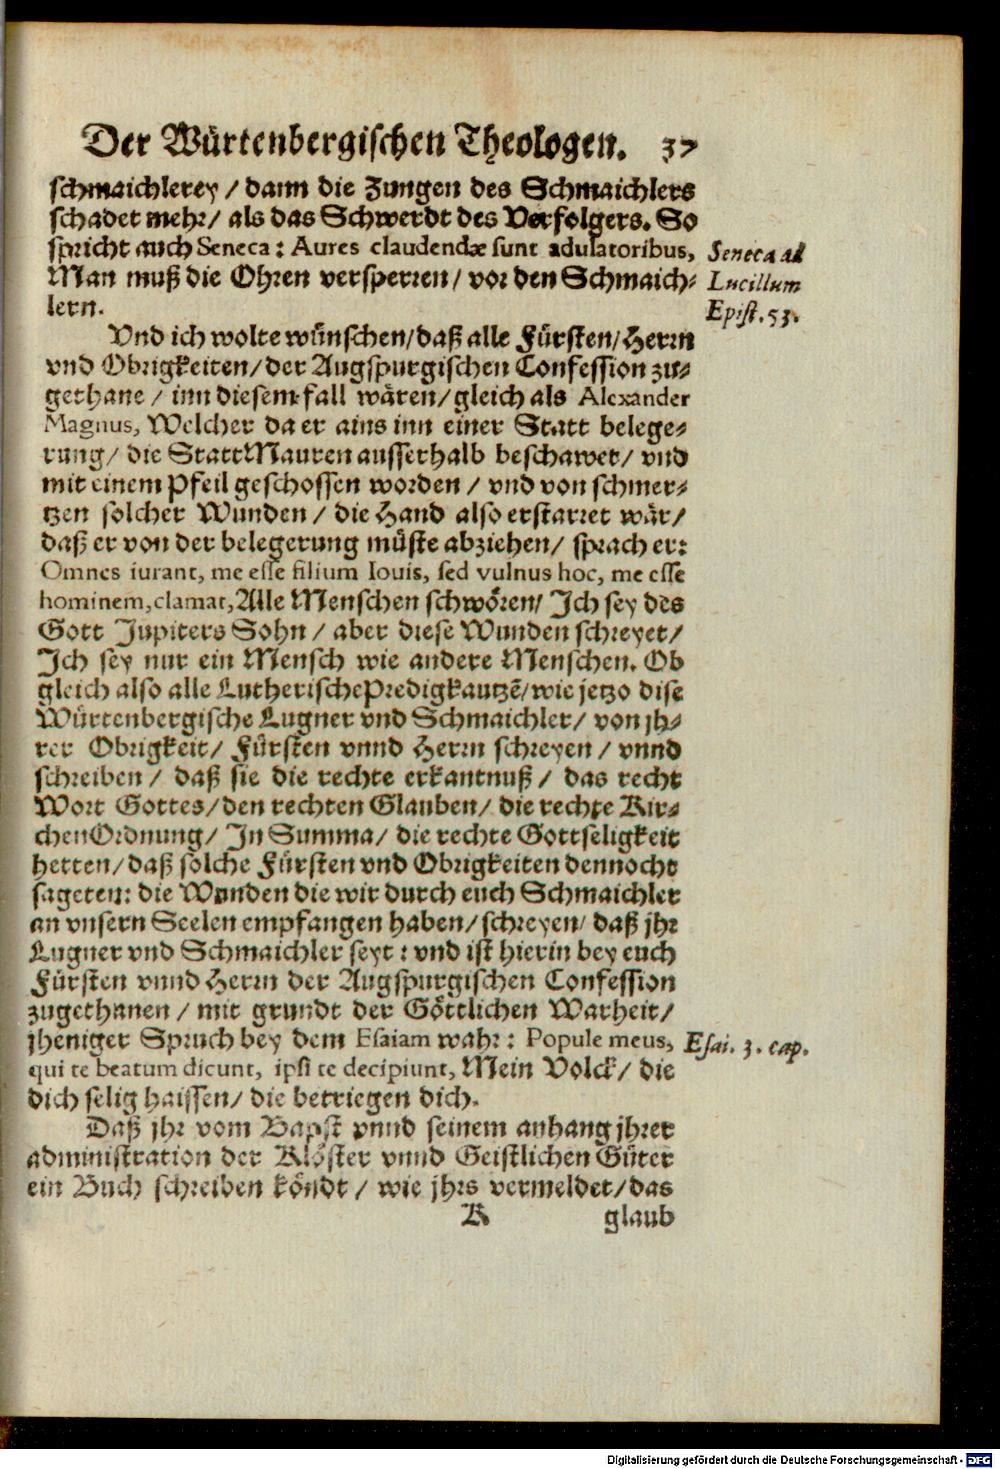 Der Würtenbergischen Theologen. 37
schmaichlerey / dann die Zungen des Schmaichlers
schadet mehr / als das Schwerdt des Verfolgers. So
spricht auch Seneca: Aures claudendæ sunt adulatoribus,
Man muß die Ohren versperren / vor den Schmaich-
lern.
Seneca ad
Lucillum
Epist. 53.
Vnd ich wolte wünschen / daß alle Fürsten / Herrn
vnd Obrigkeiten / der Augspurgischen Confession zu-
gethane / inn diesem fall wären / gleich als Alexander
Magnus, Welcher da er ains inn einer Statt belege-
rung / die StattMauren ausserhalb beschawet / vnd
mit einem Pfeil geschossen worden / vnd von schmer-
tzen solcher Wunden / die Hand also erstarret wär /
daß er von der belegerung müste abziehen / sprach er:
Omnes iurant, me esse filium Iouis, sed vulnus hoc, me esse
hominem, clamat, Alle Menschen schwören / Ich sey des
Gott Jupiters Sohn / aber diese Wunden schreyet /
Ich sey nur ein Mensch wie andere Menschen. Ob
gleich also alle Lutherische Predigkautzē / wie jetzo dise
Würtenbergische Lugner vnd Schmaichler / von jh-
rer Obrigkeit / Fürsten vnnd Herrn schreyen / vnnd
schreiben / daß sie die rechte erkantnuß / das recht
Wort Gottes / den rechten Glauben / die rechte Kir-
chenOrdnung / In Summa / die rechte Gottseligkeit
hetten / daß solche Fürsten vnd Obrigkeiten dennocht
sageten: die Wunden die wir durch euch Schmaichler
an vnsern Seelen empfangen haben / schreyen / daß jhr
Lugner vnd Schmaichler seyt: vnd ist hierin bey euch
Fürsten vnnd Herrn der Augspurgischen Confession
zugethanen / mit grundt der Göttlichen Warheit /
jheniger Spruch bey dem Esaiam wahr: Popule meus,
qui te beatum dicunt, ipsi te decipiunt, Mein Volck / die
dich selig haissen / die betriegen dich.
Esai. 3. cap.
Daß jhr vom Bapst vnnd seinem anhang jhrer
administration der Klöster vnnd Geistlichen Güter
ein Buch schreiben köndt / wie jhrs vermeldet / das
K glaub
Digitalisierung gefördert durch die Deutsche Forschungsgemeinschaft - DFG